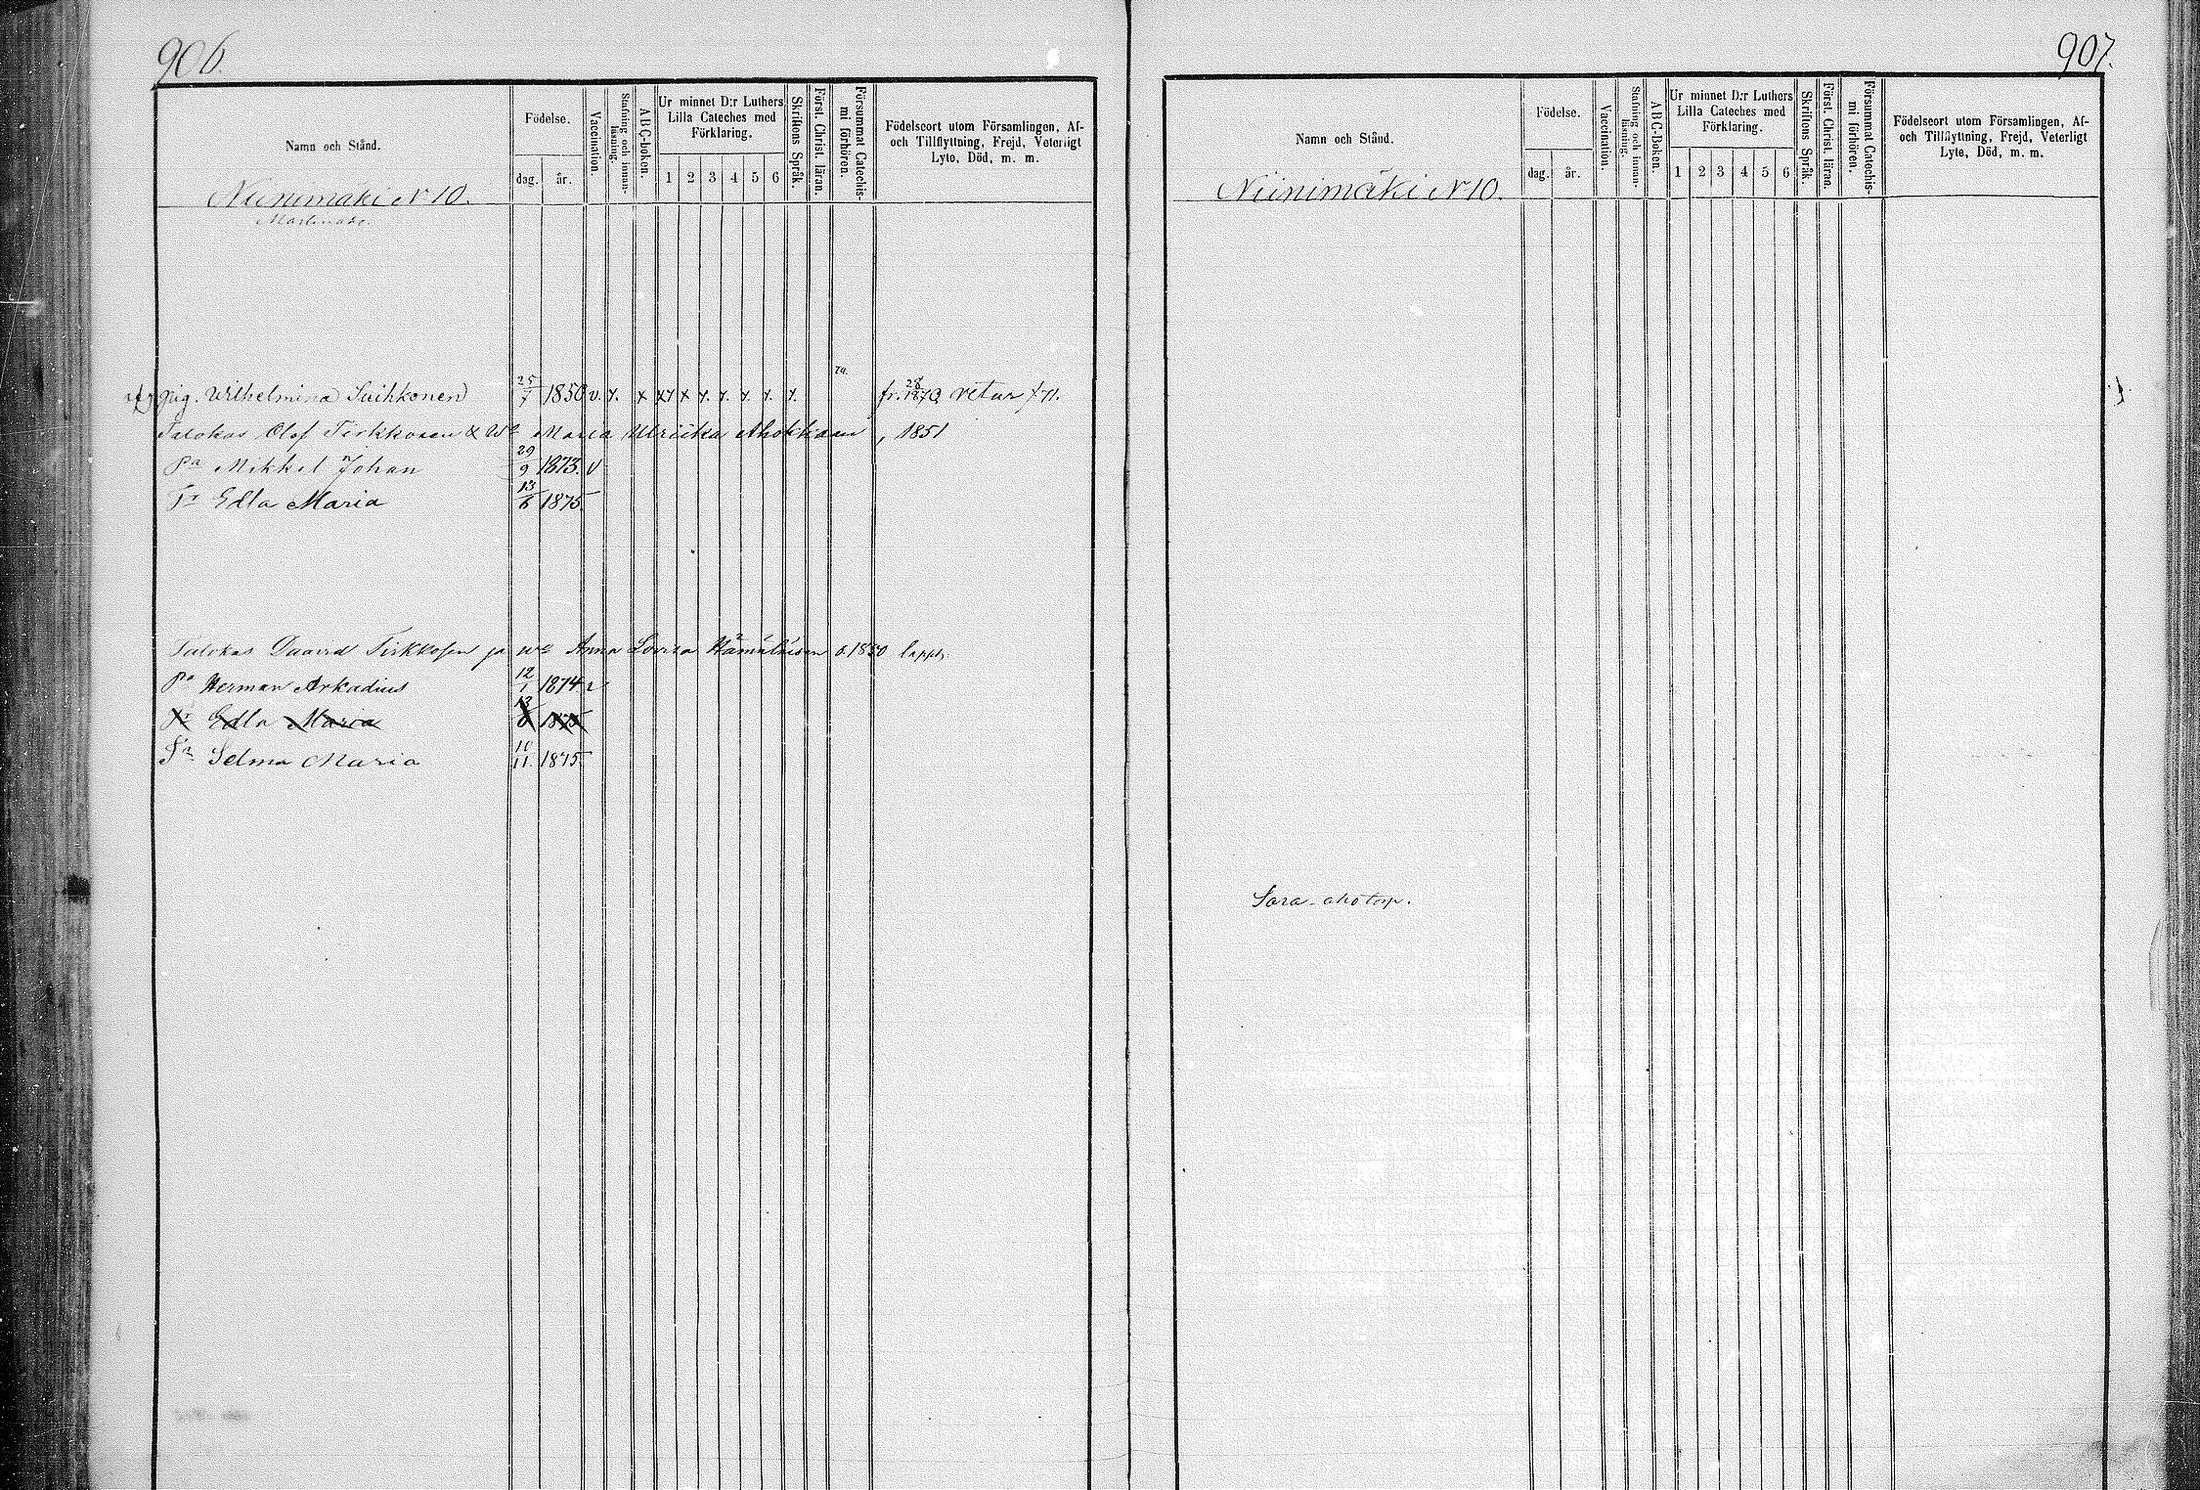 906.
Namn och Stånd.
Födelse.
dag. år.
Vaccination.
Stafning och innan-läsning.
A B C-boken.
Ur minnet D:r Luthers
Lilla Cateches med
Förklaring.
1 2 3 4 5 6
Skriftens Språk.
Först. Christ. läran.
Försummat Catechis-
mi förhören.
Födelseort utom Församlingen, Af-
och Tillflyttning, Frejd, Veterligt
Lyte, Död, m. m.
Niinimäki N 10.
Pig. Wilhelmina Suihkonen 25/7 1850 v. x. x x x x. x. x. x. x. fr. 1870 retur 71.
Talokas Olof Tirkkosen & Wo Maria Ulriika Ahokkaan, 1851
Pa Mikkel Johan 29/9 1873. v
Tr Edla Maria 13/6 1875.
Talokas Daavid Tirkkosen ja Wo Anna Lovisa Hämäläisen 1850
Po Herman Arkadius 12/1 1874 v
Tr Edla Maria 13/6 1875
Tr Selma Maria 10/11. 1875.
907.
Namn och Stånd.
Födelse.
dag. år.
Vaccination.
Stafning och innan-
läsning.
A B C-boken.
Ur minnet D:r Luthers
Lilla Cateches med
Förklaring.
1 2 3 4 5 6
Skriftens Språk.
Först. Christ. läran.
Försummat Catechis-
mi förhören.
Födelseort utom Församlingen, Af-
och Tillflyttning, Frejd, Veterligt
Lyte, Död, m. m.
Niinimäki N 10.
Sara-aho torp.